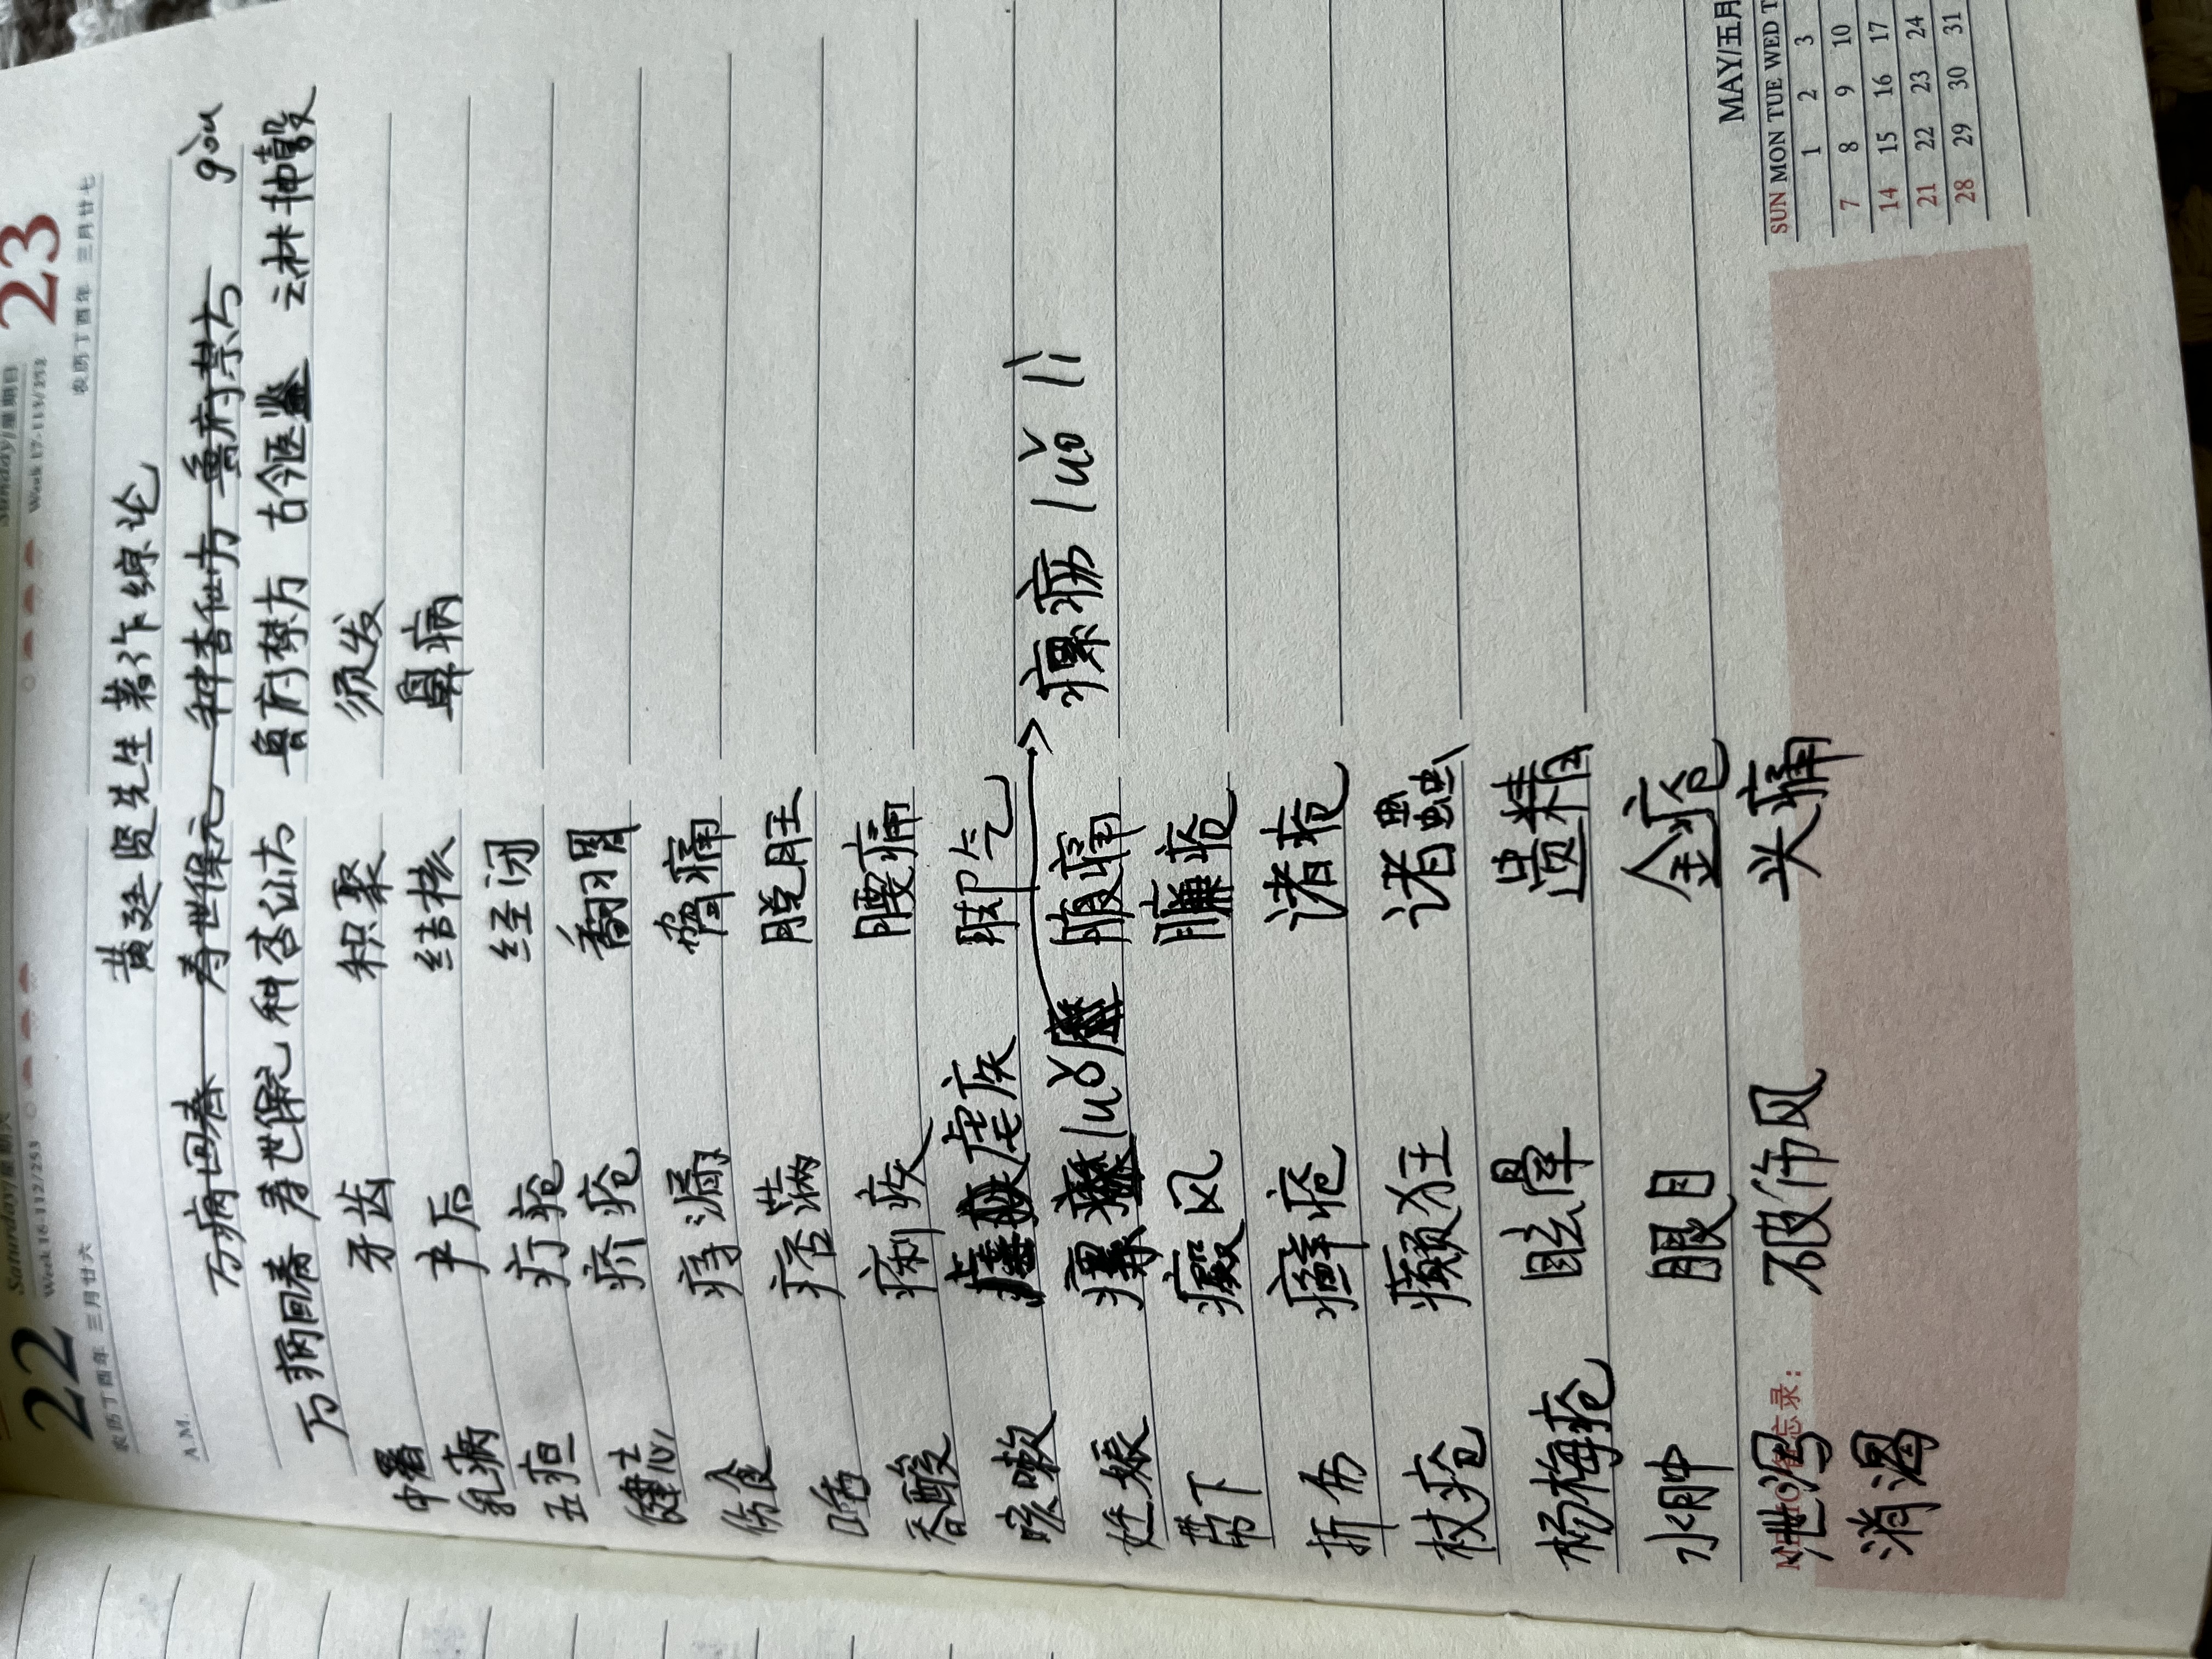 22 Saturday/星期六 23 Sunday/星期日
农历丁酉年 三月廿六 Week 16·112/253 农历丁酉年 三月廿七 Week 17·113/252
黄廷贤先生著作综论
A.M.
万病回春 寿世保元 种杏仙方 鲁府禁方 gòu
万病回春 寿世保元 种杏仙方 鲁府禁方 古今医鉴 云林神彀
中暑 牙齿 积聚 须发
乳病 产后 结核 鼻病
五疸 疔疮 经闭
健忘 疥疮 翻胃
伤食 痔漏 胁痛
痞满 脱肛
吞酸 痢疾 腰痛
咳嗽 疟疾 眩气
妊娠 瘰 luǒ 腹痛 瘰疬 luǒ lì
带下 癜风 臁疮
折伤 癣疮 诸疮
杖疮 癫狂 诸虫
杨梅疮 眩晕 遗精
水肿 眼目 金疮
泄泻 破伤风 头痛
消渴
MEMO/备忘录:
MAY/五月
SUN MON TUE WED T
1 2 3
7 8 9 10
14 15 16 17
21 22 23 24
28 29 30 31